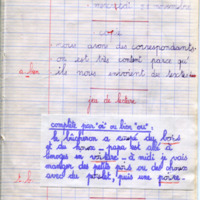 mercredi 22 novembre
copie
nous avons des correspondants.
on est très content parce qu'
ils nous envoient des textes.
jeu de lecture
complète par "oi" ou bien "ou":
le bûcheron a coupé du bois
et du houx - papa est allé à
limoges en voiture - à midi je vais
manger des petits pois ou du choux
avec du poulet, puis une poire.